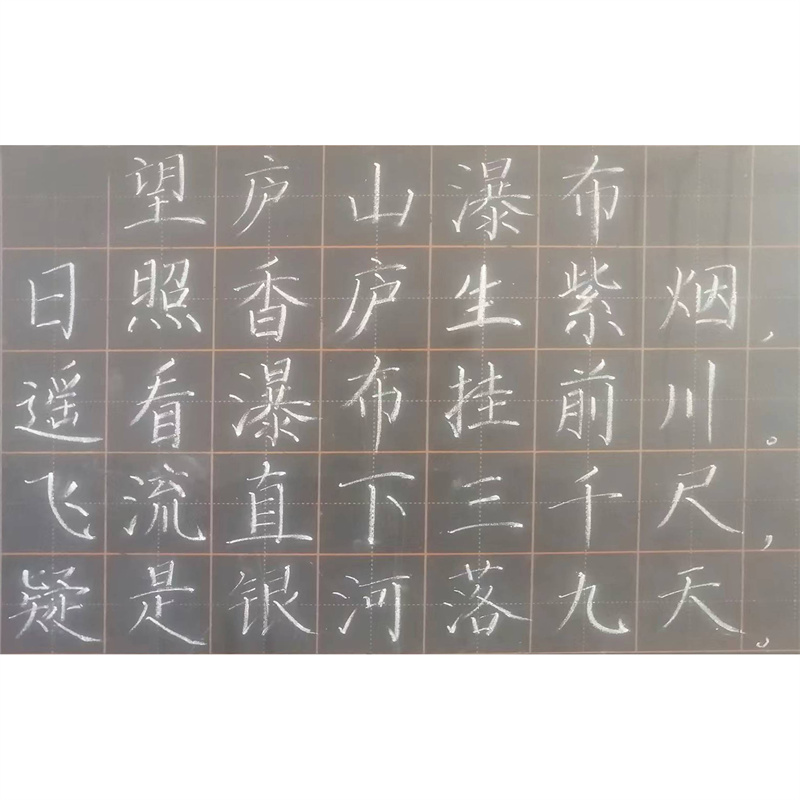 望庐山瀑布
日照香庐生紫烟,
遥看瀑布挂前川。
飞流直下三千尺,
疑是银河落九天。